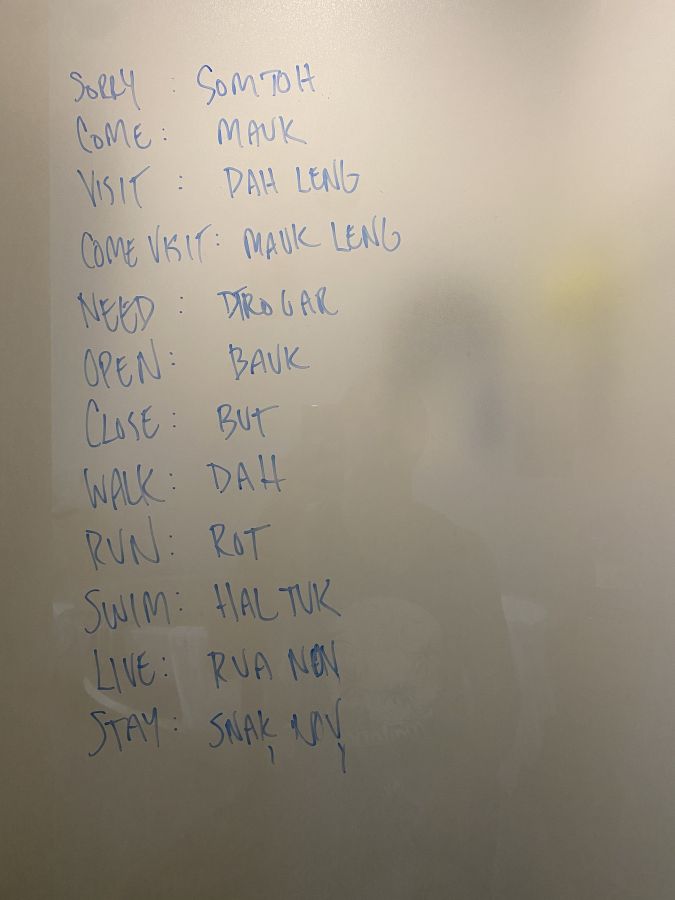 SORRY : SOMTOH
COME: MAUK
VISIT : DAH LENG
COME VISIT: MAUK LENG
NEED : DTROUAR
OPEN: BAUK
CLOSE: BUT
WALK: DAH
RUN: ROT
SWIM: HAL TUK
LIVE: RUA NOV
STAY: SNAK, NOV